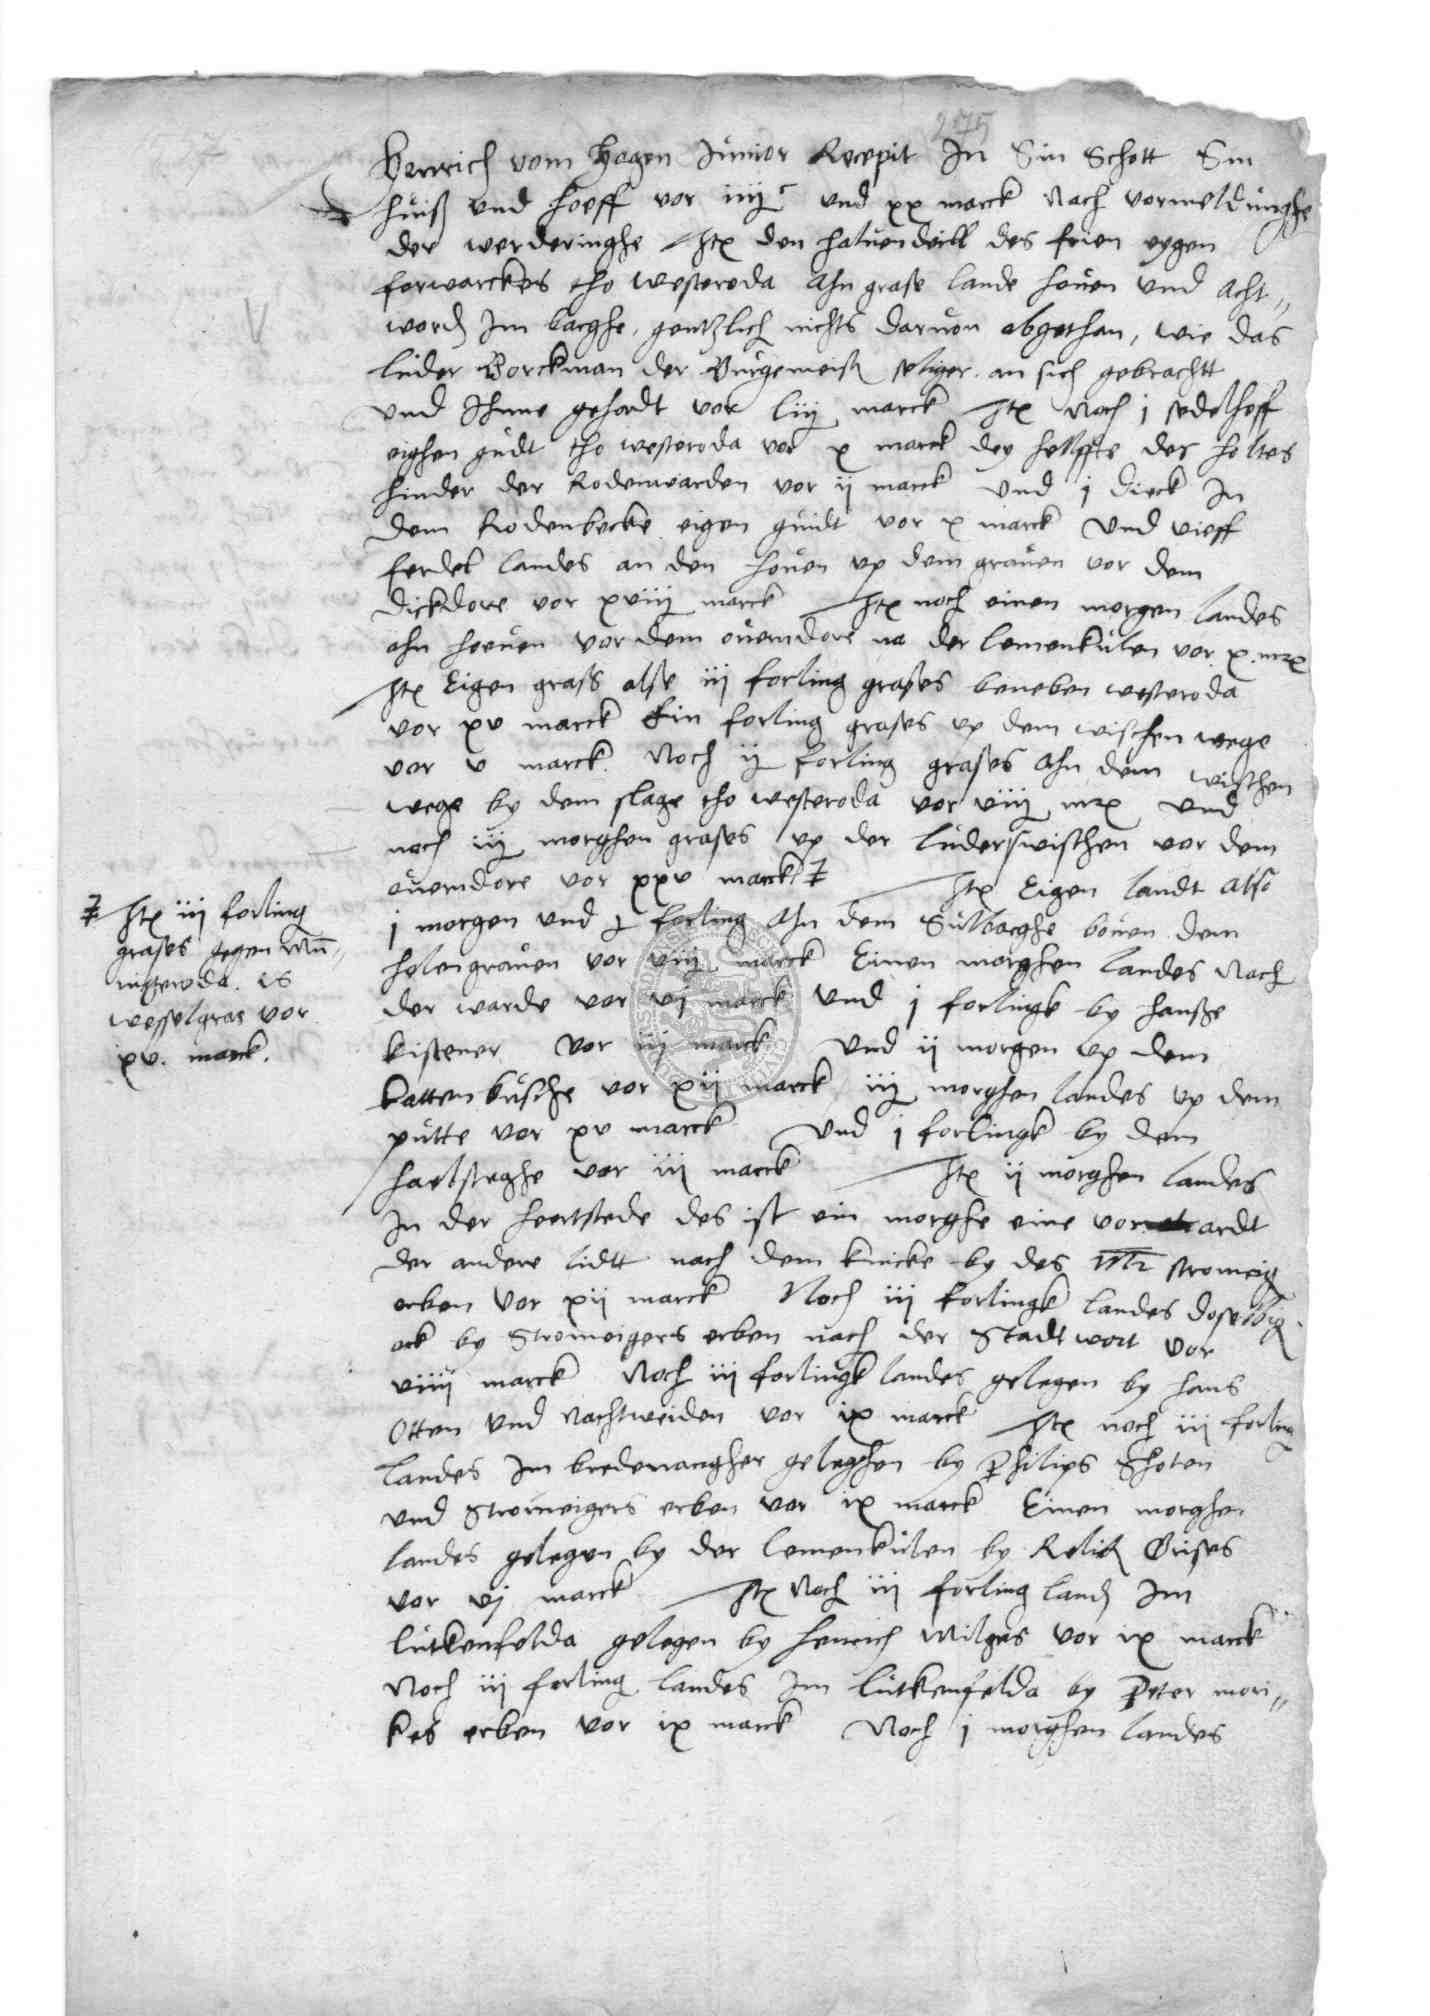 275
Henrich vom Hagen Junior Recepit In Sin Schott Sin
huiß und hoeff vor iiij c und xx marck Nach vormeldinghe
der werderinghe Itē den halvendeill des frien eygen
forwarckes tho westeroda Ahn grase lande hoven und Acht„
word Im berghe, gentzlich nichts darvon abgethan, wie das
lüder Borckman der Burgemeister seliger an sich gebrachtt
und Ihnne gehadt vor liij marck Itē Noch j sedelhoff
eighen gudt tho westeroda vor x marck dey helffte des holtes
hinder der Rodenwarden vor ij marck Und j dieck In
dem Rodenbecke eigen guidt vor x marck Und vieff
ferdel landes an den hoven up dem graven vor dem
dickdore vor xviij marck Itē noch einen morgen landes
ahn hoeven vor dem overndore na der lemenkulen vor x mrx
Itē Eigen grass alse iij forling grases beneben westeroda
vor xv marck Ein forling grases up dem wischen wege
vor v marck. Noch ij forling grases Ahn dem wischen
wege by dem slage tho westeroda vor viij mrx und
noch iij morghen grases up der luderswischen vor dem
overndore vor xxv marck Itē Eigen landt alse
j morgen und j forling Ahn dem Sulberghe boven dem
holengraven vor viij marck Einen morghen landes Nach
der warde vor vj marck Und j forlingk by hanße
kistener vor iij marck Und ij morgen up dem
kattenbusche vor xij marck iij morghen landes up dem
putte vor xv marck Und j forlingk by dem
haelsteghe vor iij marck Itē ij morghen landes
In der hertstede des ist ein morghe eine vorardt
der andere lidtt nach dem knicke by des Mr stromeig
erben vor xij marck Noch iij forlingk landes doselbig
ock by Stromeigers erben nach der Stadtwort vor
viiij marck Noch iij forlingk landes gelegen by hans
Otten und Nachtweiden vor ix marck Itē noch iij forling
landes Im bredenangher geleghen by Philips Shoten
und Stromeigers erben vor ix marck Einen morghen
landes gelegen by der lemenkulen by Relict Grises
vor vj marck Itē Noch iij forling land Im
lutkenfelda gelegen by henrich Milges vor ix marck
Noch iij forling landes Im lutkenfelda by Peter mori„
kes erben vor ix marck Noch j morghen landes
Itē iij forling
grases gegen Mū„
ingeroda is
wesselgras vor
xv. marck.